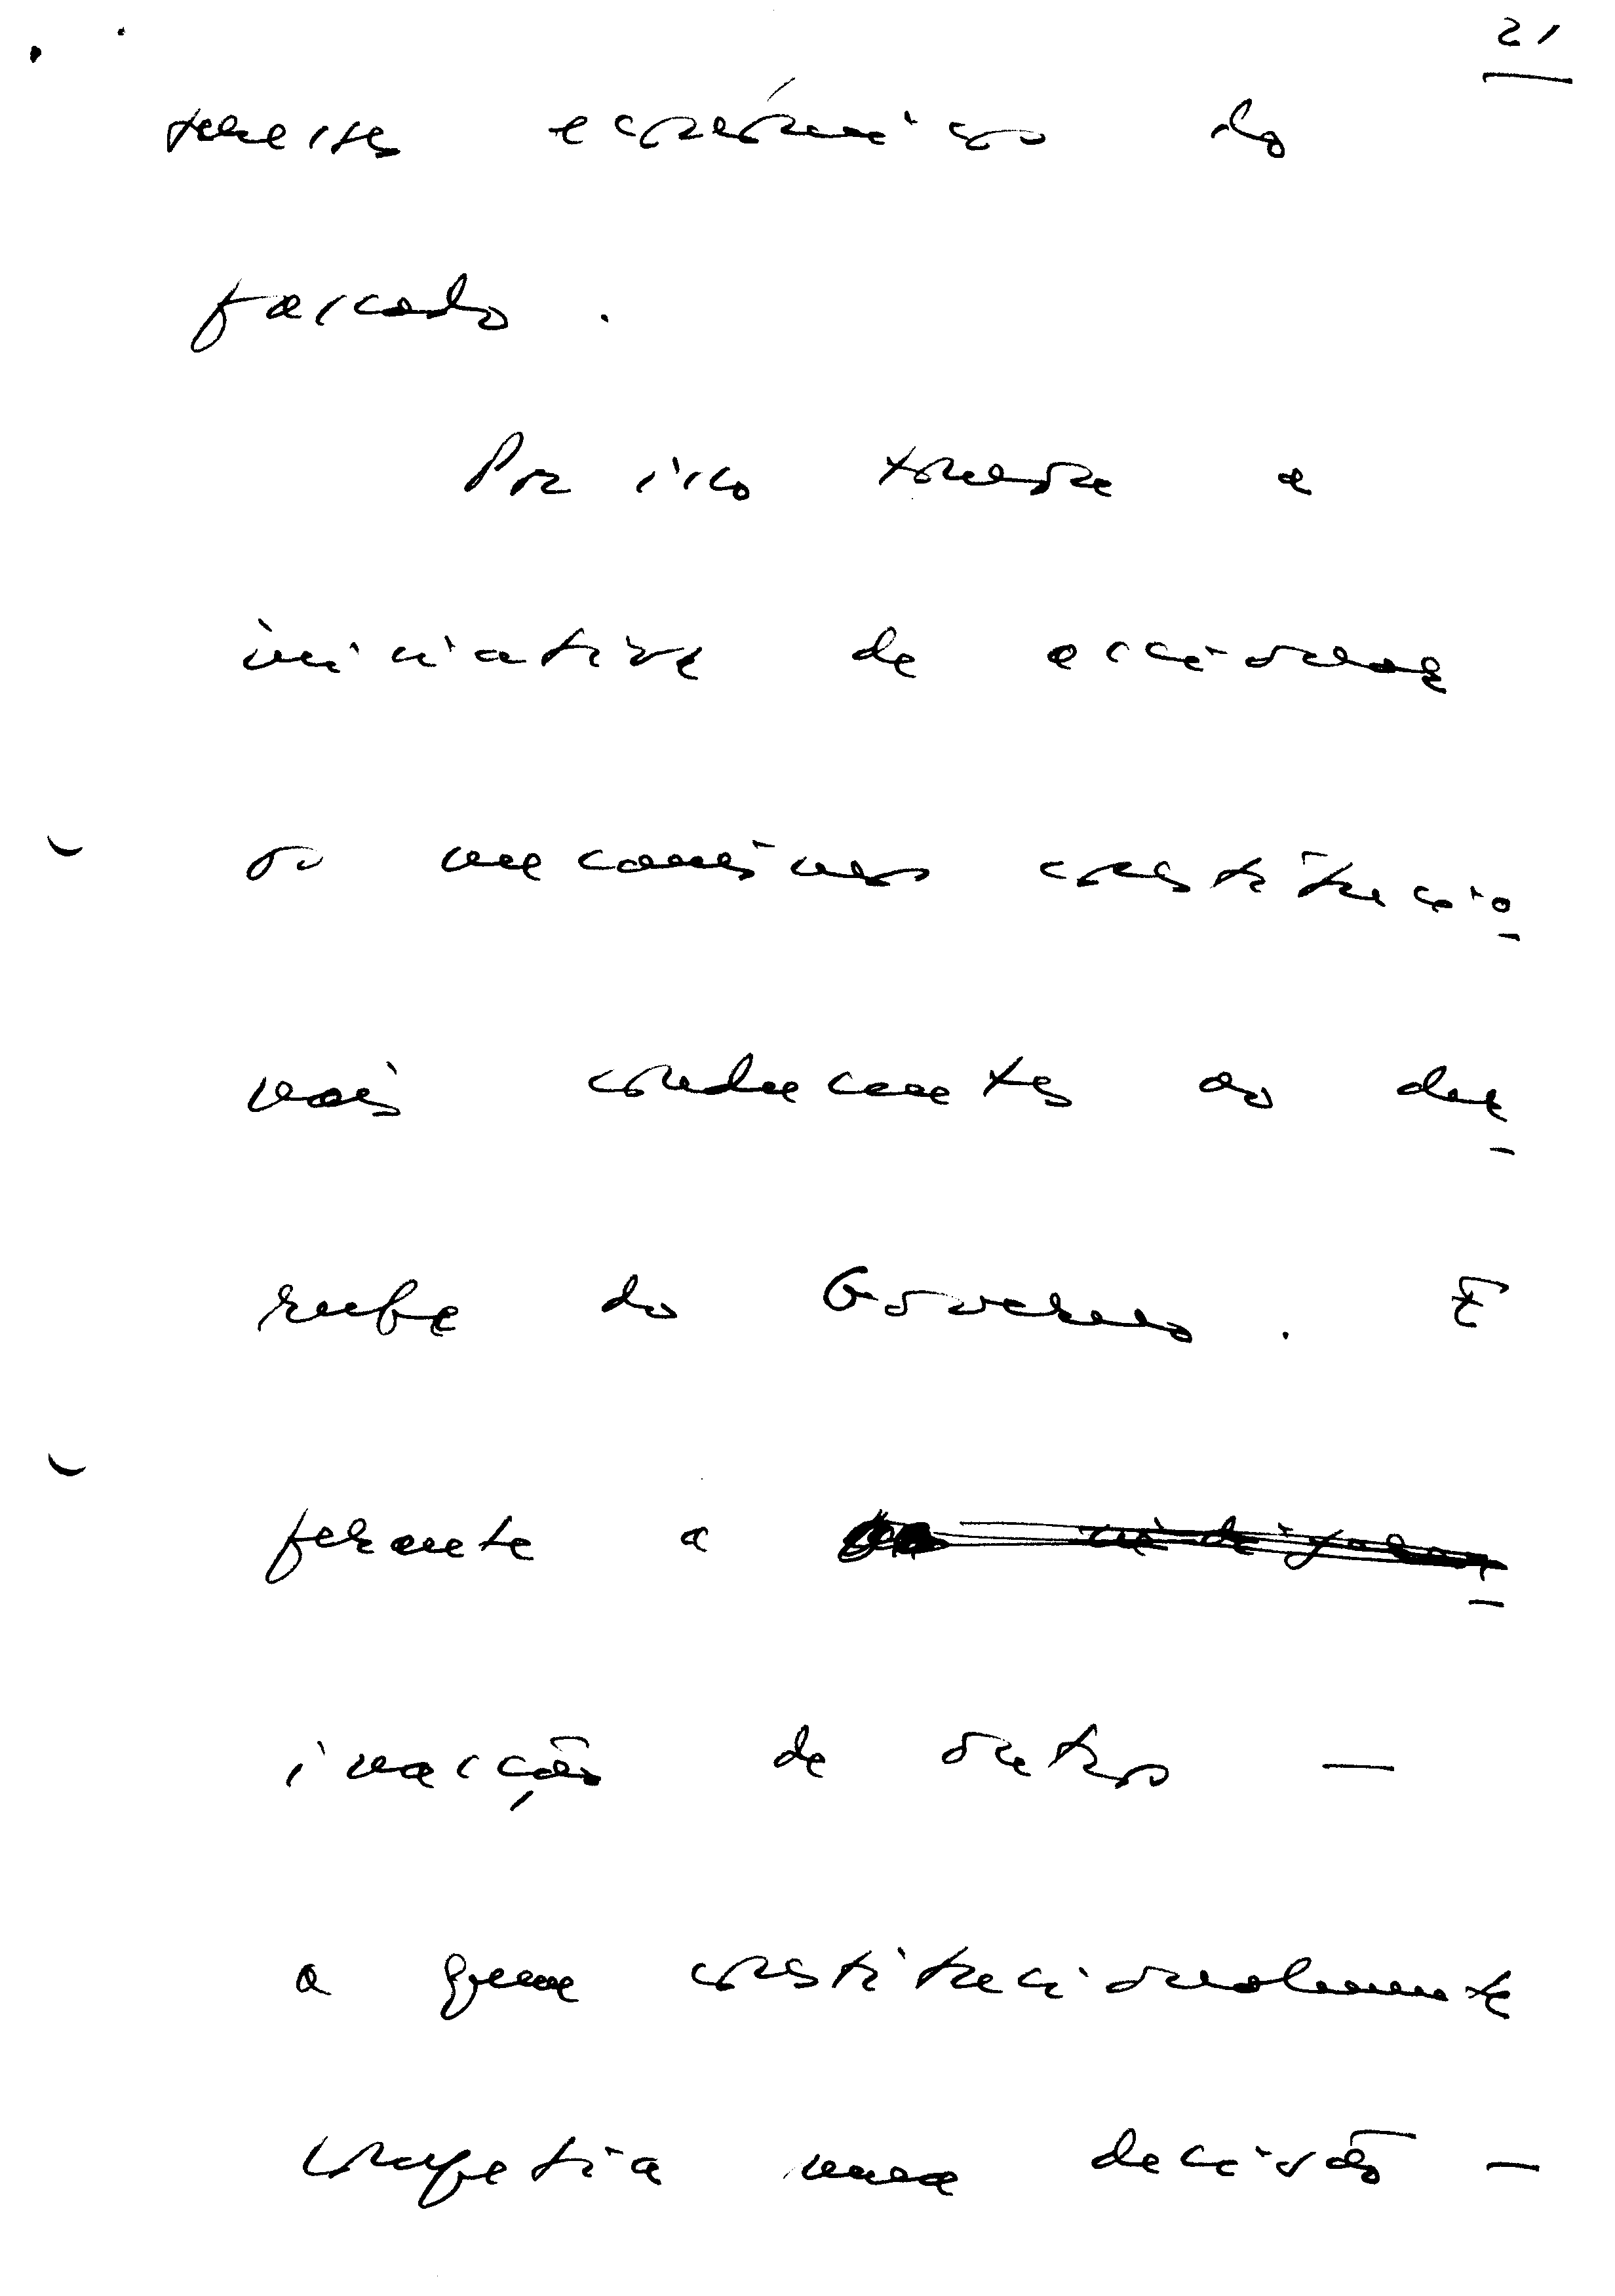 21
económicos do
passado.
Por isso tomou a
iniciativa de accionar
os mecanismos constitucio-
nais conducentes ao der-
rube do Governo. E
perante a
inacção de outros —
a quem constitucionalmente
competia uma decisão —